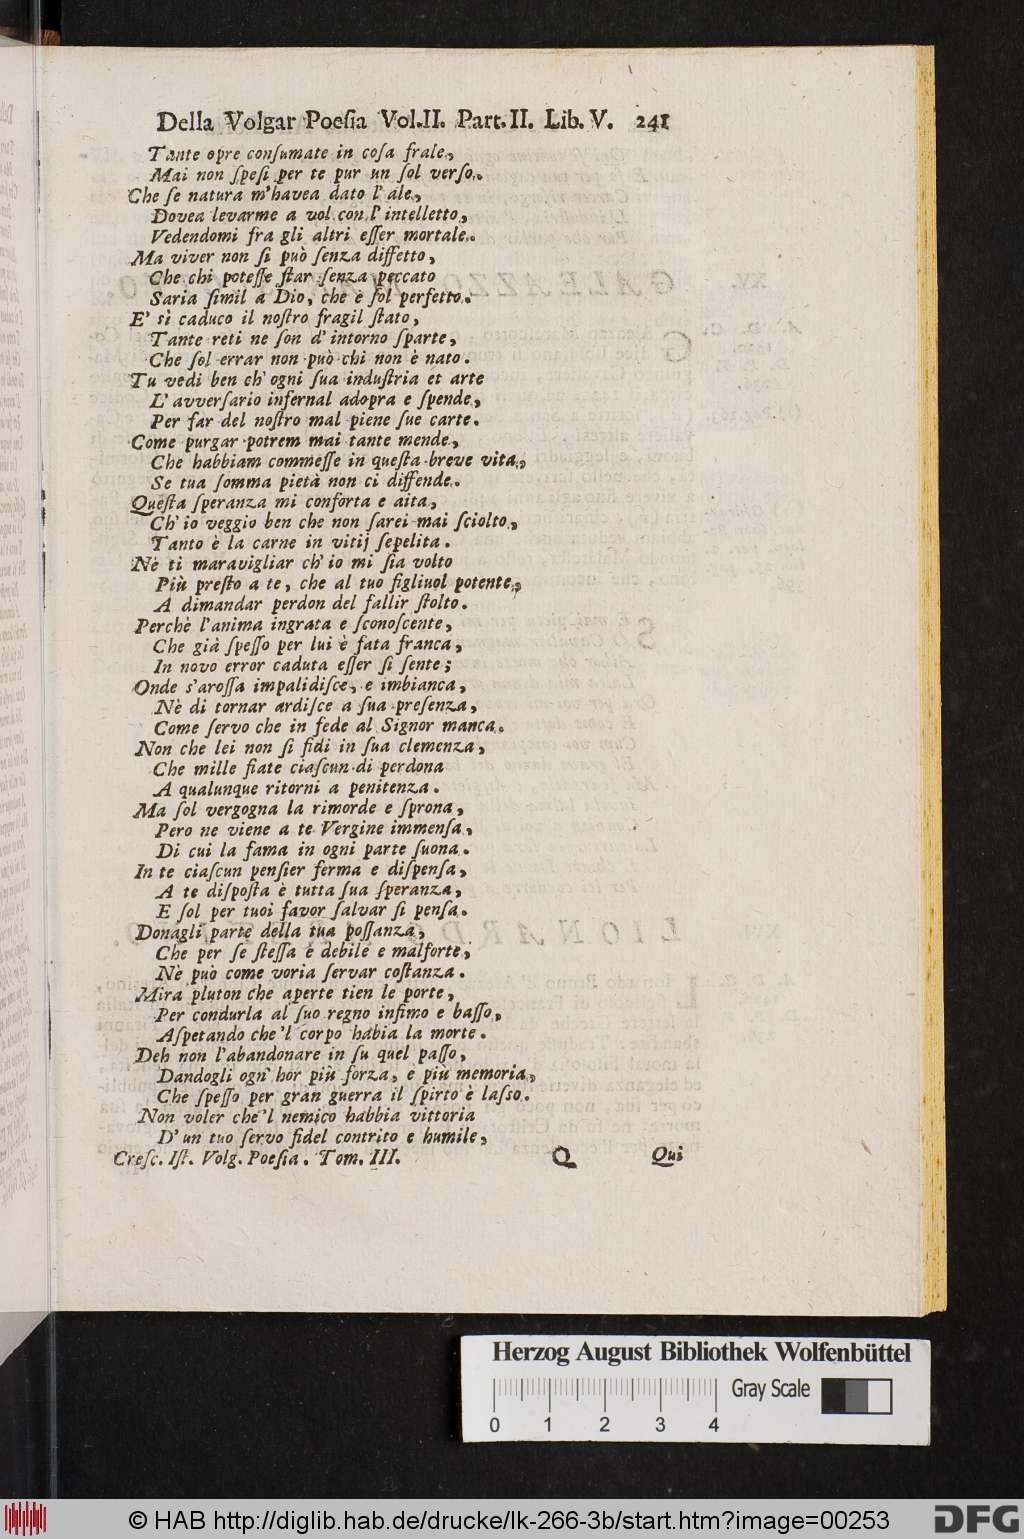 Della Volgar Poesia Vol.II. Part.II. Lib. V. 241
Tante opre consumate in cosa frale,
Mai non spesi per te pur un sol verso.
Che se natura m'havea dato l'ale,
Dovea levarme a vol con l'intelletto,
Vedendomi fra gli altri esser mortale.
Ma viver non si può senza diffetto,
Che chi potesse star senza peccato
Saria simil a Dio, che è sol perfetto.
E' sì caduco il nostro fragil stato,
Tante reti ne son d'intorno sparte,
Che sol errar non può chi non è nato.
Tu vedi ben ch'ogni sua industria et arte
L'avversario infernal adopra e spende,
Per far del nostro mal piene sue carte.
Come purgar potrem mai tante mende,
Che habbiam commesse in questa breve vita,
Se tua somma pietà non ci diffende.
Questa speranza mi conforta e aita,
Ch'io veggio ben che non sarei mai sciolto,
Tanto è la carne in vitij sepelita.
Nè ti maravigliar ch'io mi sia volto
Più presto a te, che al tuo figliuol potente,
A dimandar perdon del fallir stolto.
Perchè l'anima ingrata e sconoscente,
Che già spesso per lui è fata franca,
In novo error caduta esser si sente;
Onde s'arossa impalidisce, e imbianca,
Nè di tornar ardisce a sua presenza,
Come servo che in fede al Signor manca.
Non che lei non si fidi in sua clemenza,
Che mille fiate ciascun di perdona
A qualunque ritorni a penitenza.
Ma sol vergogna la rimorde e sprona,
Pero ne viene a te Vergine immensa,
Di cui la fama in ogni parte suona.
In te ciascun pensier ferma e dispensa,
A te disposta è tutta sua speranza,
E sol per tuoi favor salvar si pensa.
Donagli parte della tua possanza,
Che per se stessa è debile e malforte,
Nè può come voria servar costanza.
Mira pluton che aperte tien le porte,
Per condurla al suo regno infimo e basso,
Aspetando che'l corpo habia la morte.
Deh non l'abandonare in su quel passo,
Dandogli ogn'hor più forza, e più memoria,
Che spesso per gran guerra il spirto è lasso.
Non voler che'l nemico habbia vittoria
D'un tuo servo fidel contrito e humile,
Cresc. Ist. Volg. Poesia. Tom. III. Q Qui
Herzog August Bibliothek Wolfenbüttel
Gray Scale
0 1 2 3 4
© HAB http://diglib.hab.de/drucke/lk-266-3b/start.htm?image=00253
DFG